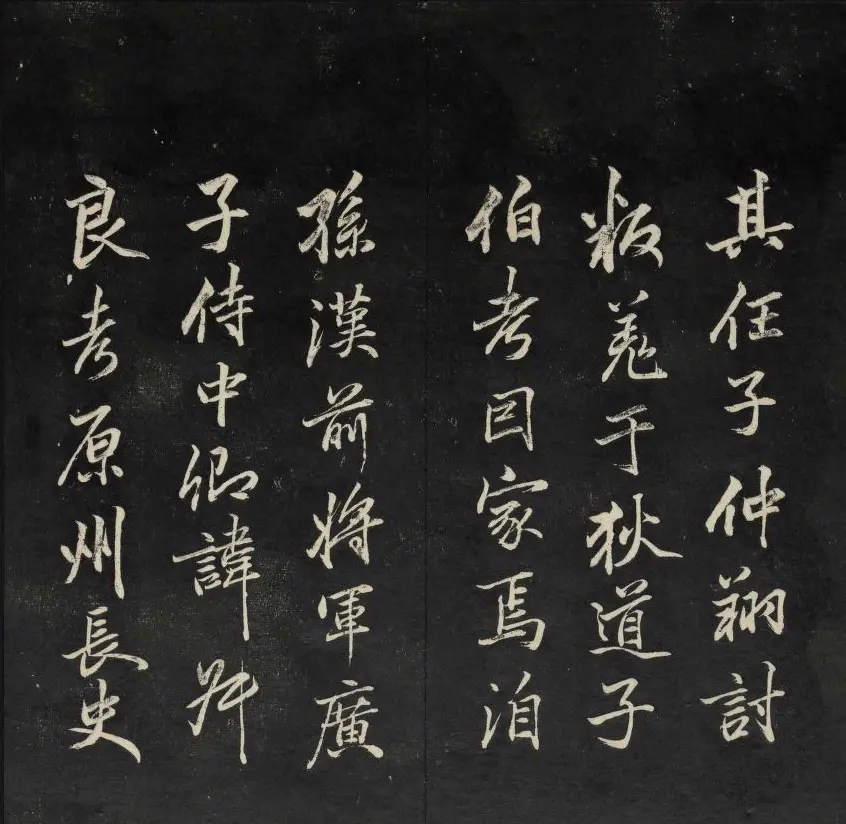 其任子仲翔討
叛羌于狄道子
伯考因家焉洎
孫漢前將軍廣
子侍中卿諱昇
良考原州長史